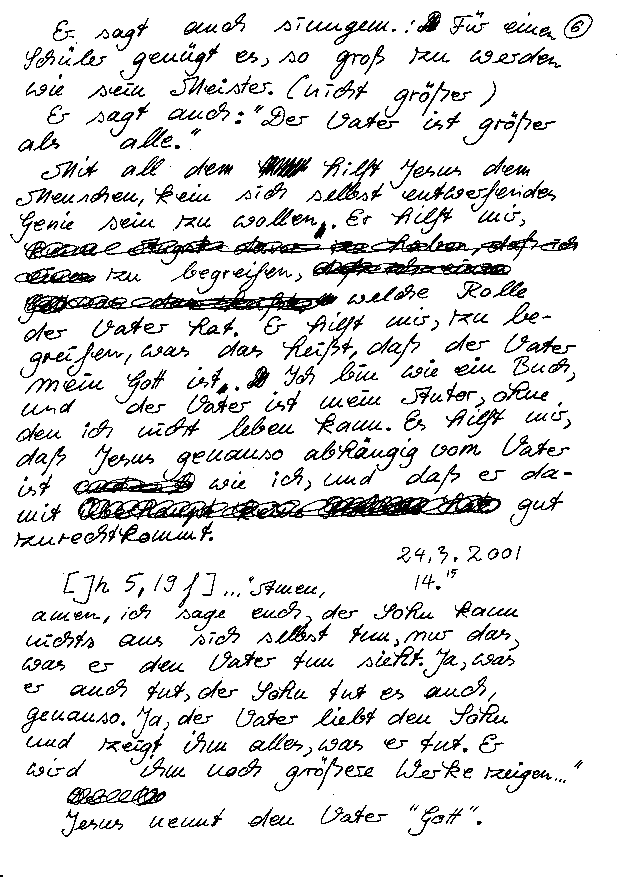 Er sagt auch sinngem.: Für einen ⑥
Schüler genügt es, so groß zu werden
wie sein Meister. (nicht größer)
Er sagt auch: "Der Vater ist größer
als alle."
Mit all dem hilft Jesus dem
Menschen, kein sich selbst entwerfendes
Genie sein zu wollen. Er hilft mir,
zu begreifen,
welche Rolle
der Vater hat. Er hilft mir, zu be-
greifen, was das heißt, daß der Vater
mein Gott ist. Ich bin wie ein Buch,
und der Vater ist mein Autor, ohne
den ich nicht leben kann. Es hilft mir,
daß Jesus genauso abhängig vom Vater
ist wie ich, und daß er da-
mit gut
zurechtkommt.
24.3.2001
[Jh 5,19f] ... "Amen, 14.15
amen, ich sage euch, der Sohn kann
nichts aus sich selbst tun, nur das,
was er den Vater tun sieht. Ja, was
er auch tut, der Sohn tut es auch,
genauso. Ja, der Vater liebt den Sohn
und zeigt ihm alles, was er tut. Er
wird ihm noch größere Werke zeigen..."
Jesus nennt den Vater "Gott".